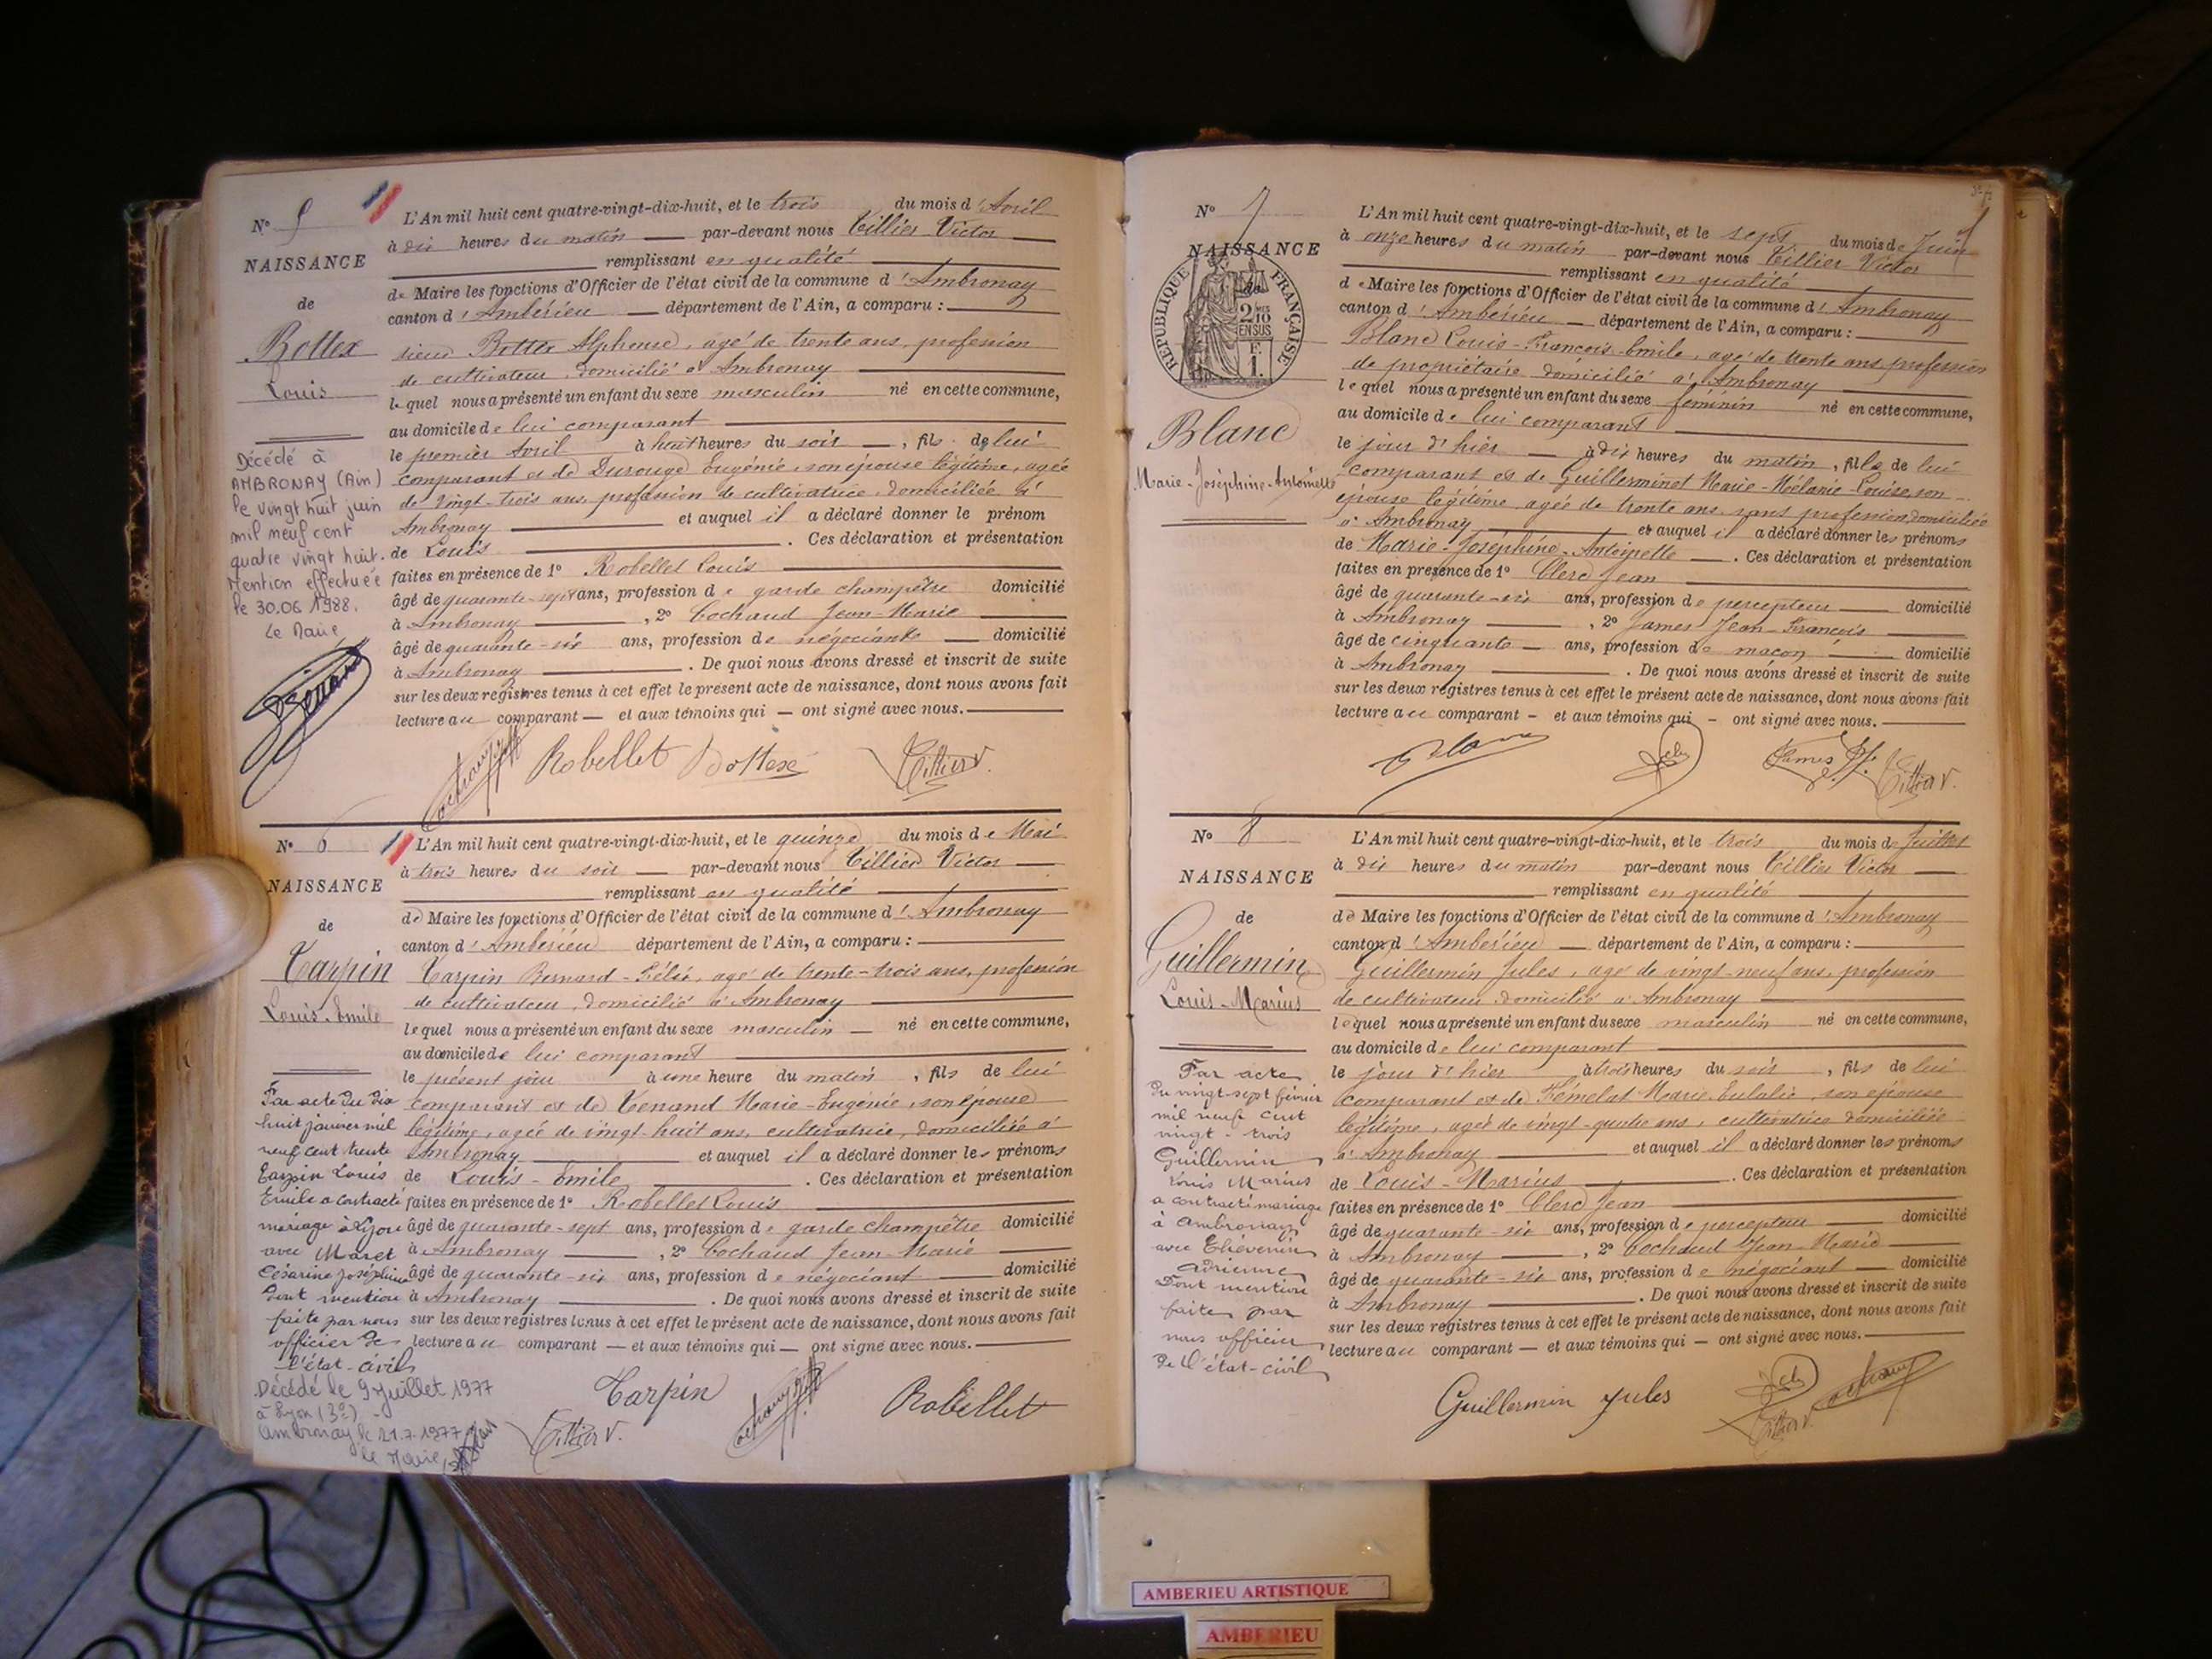 N° 5
NAISSANCE
de
Bottex
Louis
Décédé à
AMBRONAY (Ain)
le vingt huit juin
mil neuf cent
quatre vingt huit.
Mention effectuée
le 30.06 1988.
Le Maire
L'An mil huit cent quatre-vingt-dix-huit, et le trois du mois d'Avril
à dix heures du matin par-devant nous Tillier Victor
remplissant en qualité
de Maire les fonctions d'Officier de l'état civil de la commune d'Ambronay
canton d'Ambérieu département de l'Ain, a comparu :
sieur Bottex Alphonse, agé de trente ans, profession
de cultivateur, domicilié à Ambronay
lequel nous a présenté un enfant du sexe masculin né en cette commune,
au domicile de lui comparant
le premier Avril à huit heures du soir, fils de lui
comparant et de Durouge Eugénie, son épouse légitime, agée
de vingt-trois ans, profession de cultivatrice, domiciliée à
Ambronay et auquel il a déclaré donner le prénom
de Louis. Ces déclaration et présentation
faites en présence de 1° Robellet Louis
âgé de quarante-sept ans, profession de garde champêtre domicilié
à Ambronay, 2° Cochaud Jean-Marie
âgé de quarante-six ans, profession de négociant domicilié
à Ambronay. De quoi nous avons dressé et inscrit de suite
sur les deux registres tenus à cet effet le présent acte de naissance, dont nous avons fait
lecture au comparant — et aux témoins qui — ont signé avec nous.
Robellet Bottex Tillier V.
N° 6
NAISSANCE
de
Tarpin
Louis-Emile
Par acte du dix
huit janvier mil
neuf cent trente
Tarpin Louis
Emile a contracté
mariage à Lyon
avec Maret
Césarine Joséphine
Dont mention
faite par nous
officier de
l'état-civil
Décédé le 9 Juillet 1977
à Lyon (3e)
Ambronay le 21.7.1977
le Maire,
L'An mil huit cent quatre-vingt-dix-huit, et le quinze du mois de Mai
à trois heures du soir par-devant nous Tillier Victor
remplissant en qualité
de Maire les fonctions d'Officier de l'état civil de la commune d'Ambronay
canton d'Ambérieu département de l'Ain, a comparu :
Tarpin Bernard-Félix, agé de trente-trois ans, profession
de cultivateur, domicilié à Ambronay
lequel nous a présenté un enfant du sexe masculin — né en cette commune,
au domicile de lui comparant
le présent jour à une heure du matin, fils de lui
comparant et de Tenand Marie-Eugénie, son épouse
légitime, agée de vingt-huit ans, cultivatrice, domiciliée à
Ambronay et auquel il a déclaré donner les prénoms
de Louis-Emile. Ces déclaration et présentation
faites en présence de 1° Robellet Louis
âgé de quarante-sept ans, profession de garde champêtre domicilié
à Ambronay, 2° Cochaud Jean-Marie
âgé de quarante-six ans, profession de négociant domicilié
à Ambronay. De quoi nous avons dressé et inscrit de suite
sur les deux registres tenus à cet effet le présent acte de naissance, dont nous avons fait
lecture au comparant — et aux témoins qui — ont signé avec nous.
Tarpin Robellet
Tillier V.
N° 7
NAISSANCE
REPUBLIQUE FRANÇAISE
2 10MES
EN SUS
F.
1.
Blanc
Marie-Joséphine-Antoinette
L'An mil huit cent quatre-vingt-dix-huit, et le sept du mois de Juin
à onze heures du matin par-devant nous Tillier Victor
remplissant en qualité
de Maire les fonctions d'Officier de l'état civil de la commune d'Ambronay
canton d'Ambérieu département de l'Ain, a comparu :
Blanc Louis-François-Emile, agé de trente ans, profession
de propriétaire domicilié à Ambronay
lequel nous a présenté un enfant du sexe féminin né en cette commune,
au domicile de lui comparant
le jour d'hier à dix heures du matin, fille de lui
comparant et de Guillerminet Marie-Mélanie-Louise, son
épouse légitime, agée de trente ans, sans profession, domiciliée
à Ambronay et auquel il a déclaré donner les prénoms
de Marie-Joséphine-Antoinette. Ces déclaration et présentation
faites en présence de 1° Clerc Jean
âgé de quarante-six ans, profession de percepteur domicilié
à Ambronay, 2° James Jean-François
âgé de cinquante ans, profession de maçon domicilié
à Ambronay. De quoi nous avons dressé et inscrit de suite
sur les deux registres tenus à cet effet le présent acte de naissance, dont nous avons fait
lecture au comparant — et aux témoins qui — ont signé avec nous.
Blanc James Tillier V.
N° 8
NAISSANCE
de
Guillermin
Louis-Marius
Par acte
du vingt-sept février
mil neuf cent
vingt-trois
Guillermin
Louis Marius
a contracté mariage
à Ambronay
avec Thévenin
Adrienne
Dont mention
faite par
nous officier
de l'état-civil
L'An mil huit cent quatre-vingt-dix-huit, et le trois du mois de Juillet
à dix heures du matin par-devant nous Tillier Victor
remplissant en qualité
de Maire les fonctions d'Officier de l'état civil de la commune d'Ambronay
canton d'Ambérieu département de l'Ain, a comparu :
Guillermin Jules, agé de vingt-neuf ans, profession
de cultivateur domicilié à Ambronay
lequel nous a présenté un enfant du sexe masculin né en cette commune,
au domicile de lui comparant
le jour d'hier à trois heures du soir, fils de lui
comparant et de Fémelat Marie-Eulalie, son épouse
légitime, agée de vingt-quatre ans, cultivatrice domiciliée
à Ambronay et auquel il a déclaré donner les prénoms
de Louis-Marius. Ces déclaration et présentation
faites en présence de 1° Clerc Jean
âgé de quarante-six ans, profession de percepteur domicilié
à Ambronay, 2° Cochaud Jean-Marie
âgé de quarante-six ans, profession de négociant domicilié
à Ambronay. De quoi nous avons dressé et inscrit de suite
sur les deux registres tenus à cet effet le présent acte de naissance, dont nous avons fait
lecture au comparant — et aux témoins qui — ont signé avec nous.
Guillermin Jules
Tillier V.
AMBERIEU ARTISTIQUE
AMBERIEU